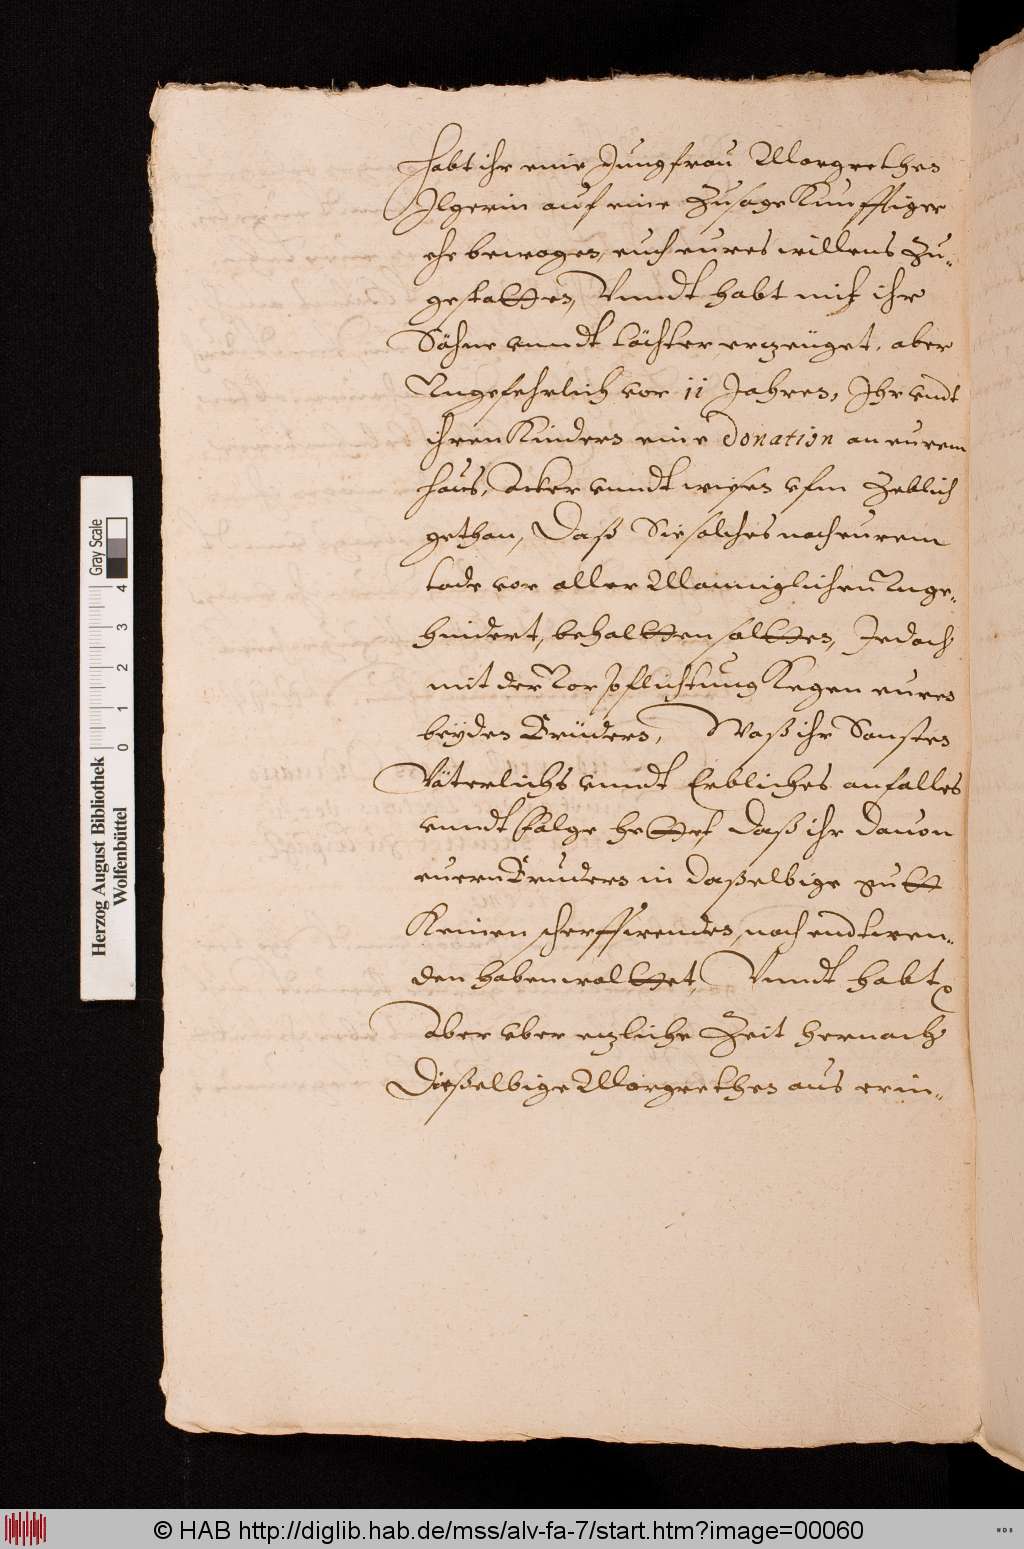 habt ihr eine Jungfrau Margrethen
Ilgerin auf eine Zusage Kunfftiger
ehe bewogen, euch eures willens Zu-
gestatten, Vnndt habt mit ihr
Söhne vnndt töchter erzeuget, aber
Ungefehrlich vor 11 Jahren, Ihr vndt
ihren Kindern eine Donation an eurem
haus, Acker vnndt wiesen vfm
gethan, Daß Sie solches nach eurem
tode vor aller Manniglichen Unge-
hindert, behaltten soltten, Jedoch
mit der Vorpflichtung Kegen euren
beyden Brüdern, Waß ihr Sonsten
Väterlichs vnndt Erbliches anfalles
vnndt folge hettet, daß ihr dauon
euern Brudern in daßelbige gutt
Keinen noch endtwen-
den haben wolttet, Vnndt habt
Aber vber etzliche Zeit hernach
Dießelbige Margrethen aus erin-
Herzog August Bibliothek
Wolfenbüttel
0 1 2 3 4
Gray Scale
© HAB http://diglib.hab.de/mss/alv-fa-7/start.htm?image=00060